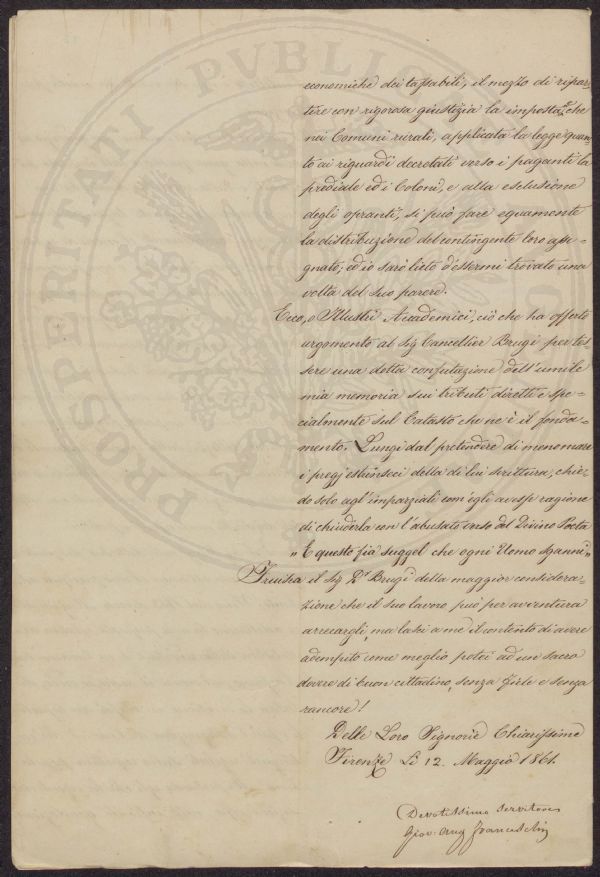 economiche dei tassabili, il mezzo di ripar-
tire con rigorosa giustizia la imposta; che
nei Comuni rurali, applicata la legge quan-
to ai riguardi decretati verso i paganti la
prediale ed i Coloni, e alla esclusione
degli opranti, si può fare equamente
la distribuzione del contingente loro asse-
gnato; ed io sarò lieto d'essermi trovato una
volta del suo parere.
Ecco, o Illustri Accademici, ciò che ha offerto
argomento al Sig Cancellier Brugi per tes-
sere una dotta confutazione dell'umile
mia memoria sui tributi diretti e spe-
cialmente sul Catasto che ne è il fonda-
mento. Lungi dal pretendere di menomare
i pregj estrinseci della di lui scrittura, chie-
do solo agl'imparziali com'egli avesse ragione
di chiuderla con l'abusato verso del Divino Poeta
"E questo fia suggel che ogni Uomo sganni"
il Sig Dr Brugi della maggior considera-
zione che il suo lavoro può per avventura
arrecargli, ma lasci a me il contento di avere
adempito come meglio potei ad un sacro
dovere di buon cittadino, senza fiele e senza
rancore!
Delle Loro Signorie Chiarissime
Firenze Li 12. Maggio 1861.
Devotissimo Servitore
Giov. Ang Franceschi
PROSPERITATI PVBLICAE